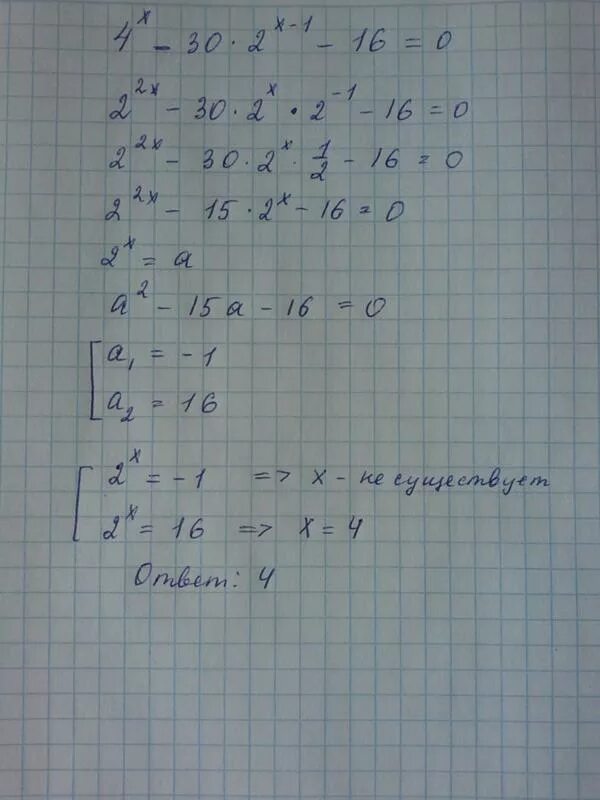 4^x - 30 · 2^{x-1} - 16 = 0
2^{2x} - 30 · 2^x · 2^{-1} - 16 = 0
2^{2x} - 30 · 2^x · 1/2 - 16 = 0
2^{2x} - 15 · 2^x - 16 = 0
2^x = a
a^2 - 15a - 16 = 0
[ a_1 = -1
a_2 = 16
[ 2^x = -1 => x - не существует
2^x = 16 => x = 4
Ответ: 4